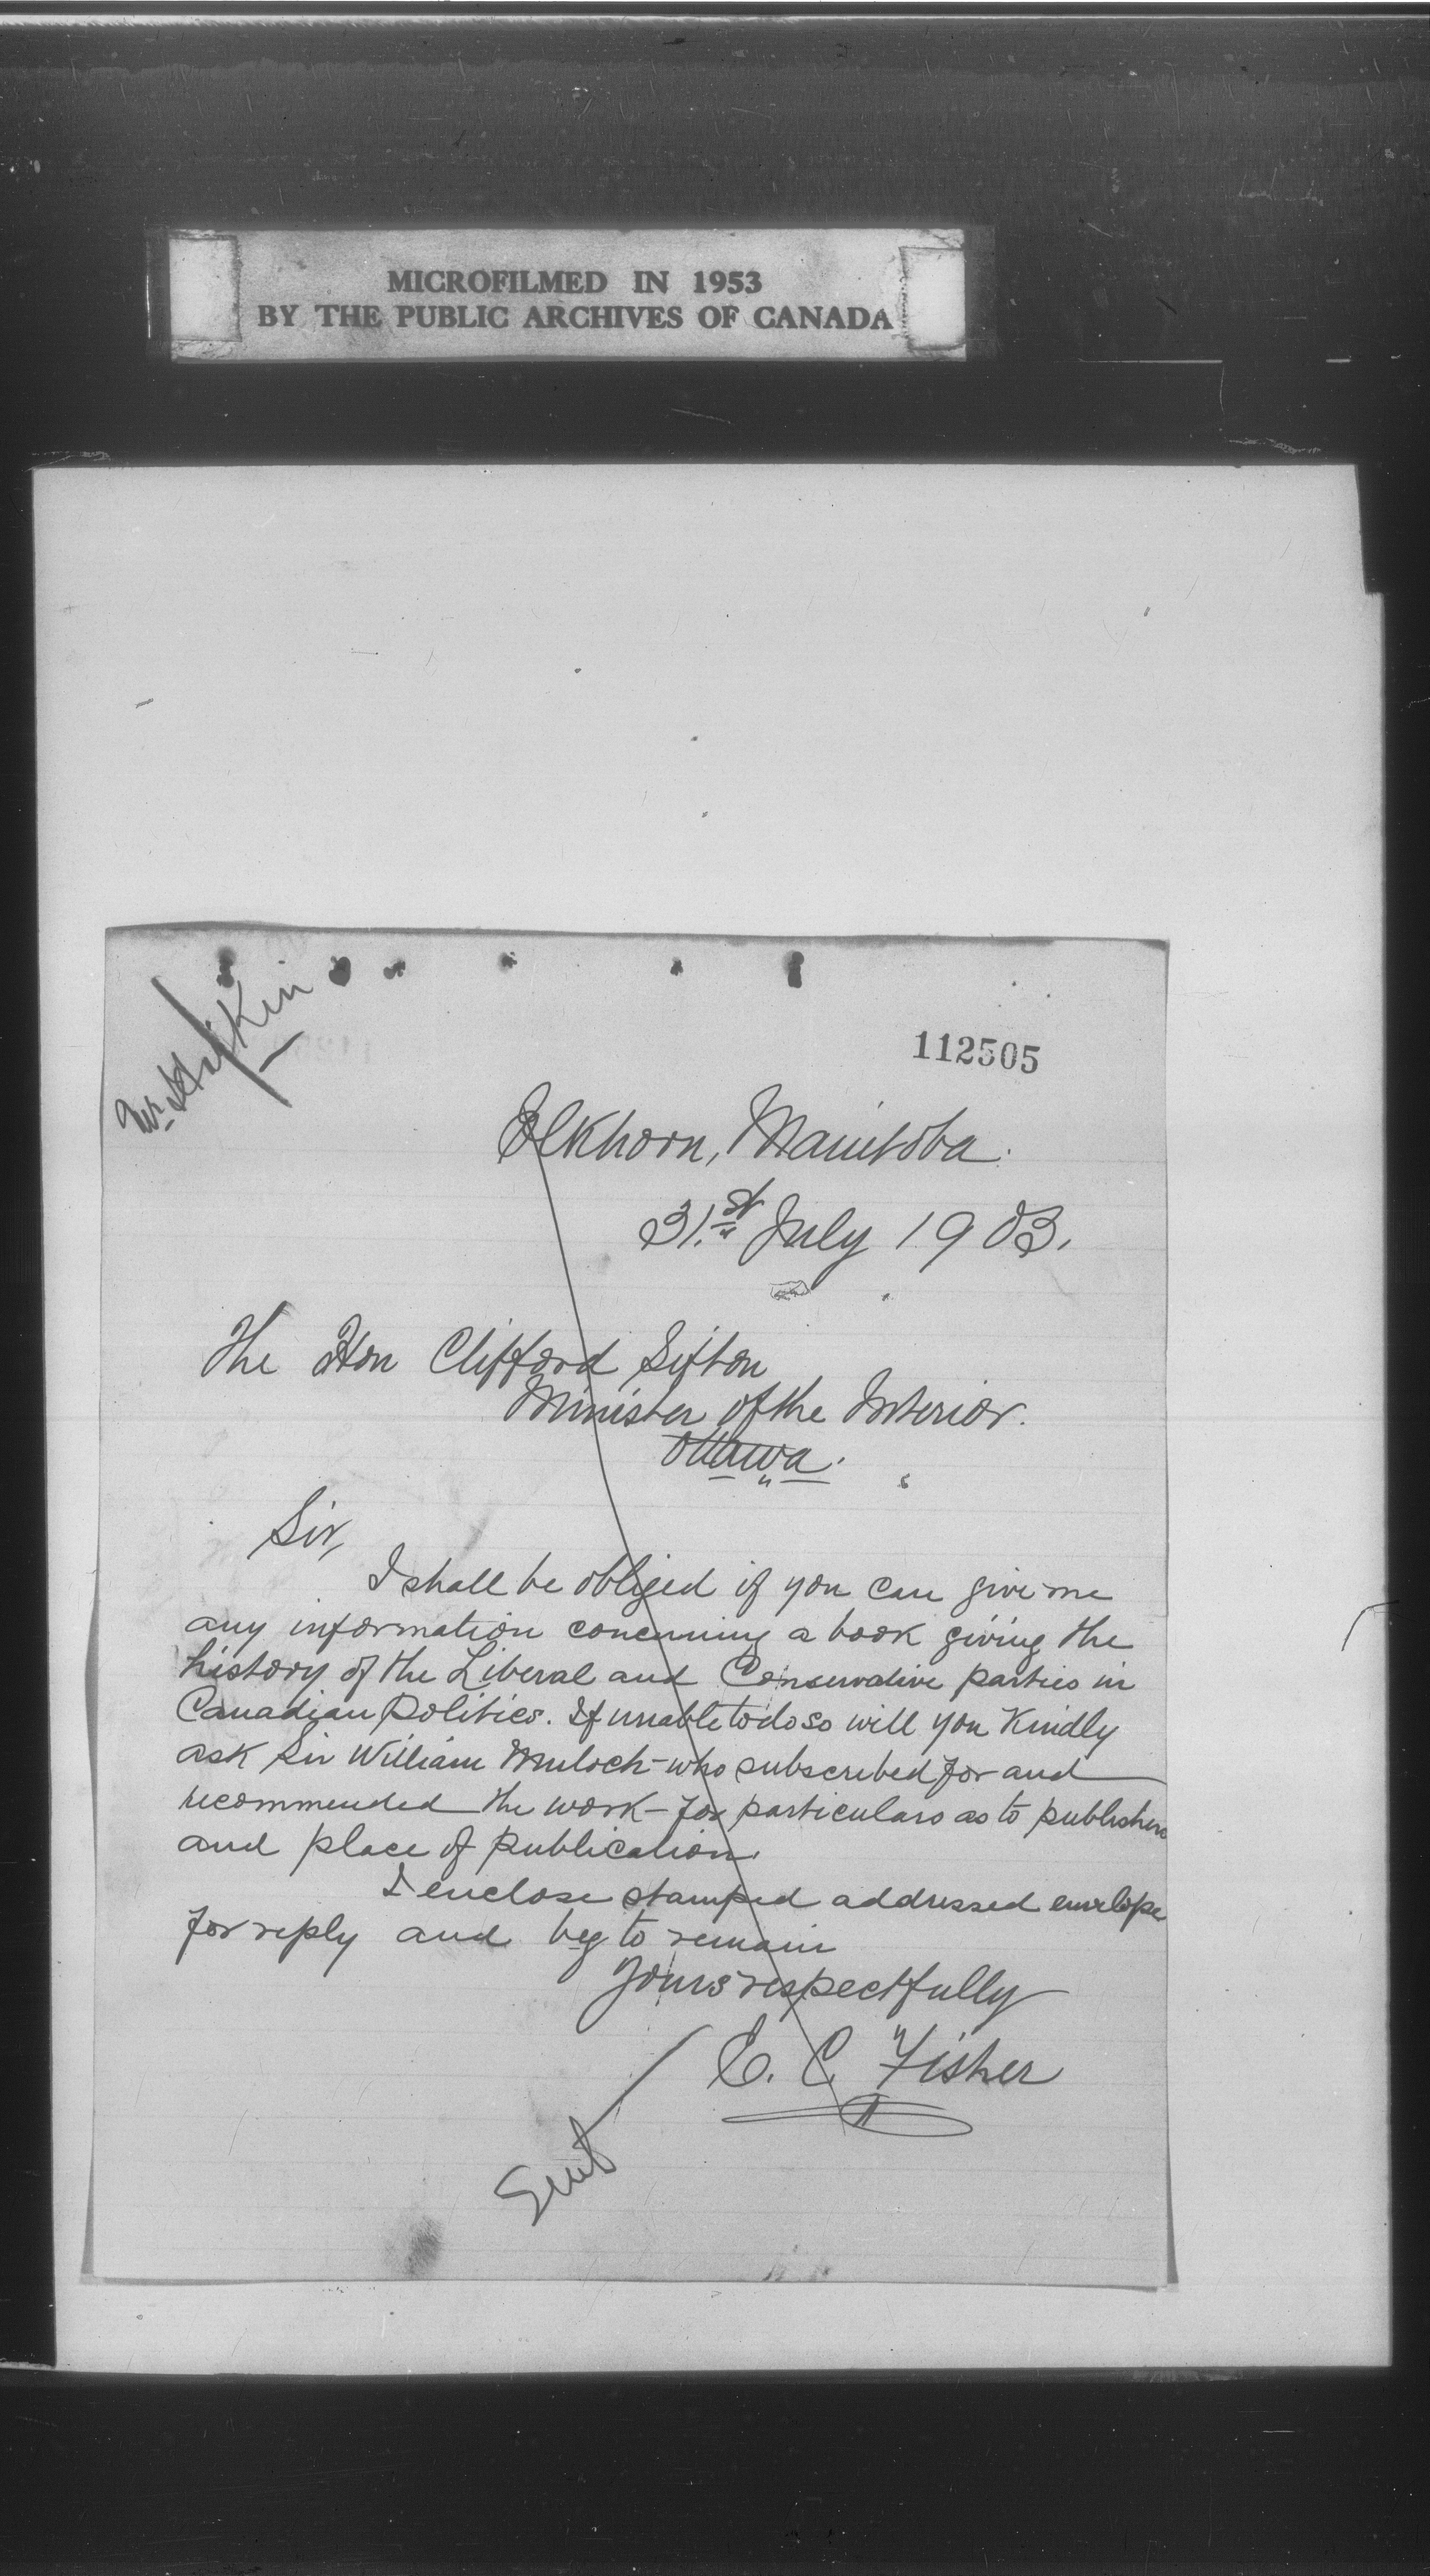 MICROFILMED IN 1953
BY THE PUBLIC ARCHIVES OF CANADA
Mr
112505
Elkhorn, Manitoba.
31st July 1903.
The Hon Clifford Sifton
Minister of the Interior.
Ottawa.
Sir,
I shall be obliged if you can give me
any information concerning a book giving the
history of the Liberal and Conservative parties in
Canadian Politics. If unable to do so will you Kindly
ask Sir William Mulock - who subscribed for and
recommended the work - for particulars as to publishers
and place of publication.
I enclose stamped addressed envelope
for reply and beg to remain
Yours respectfully
E. C. Fisher
Sent